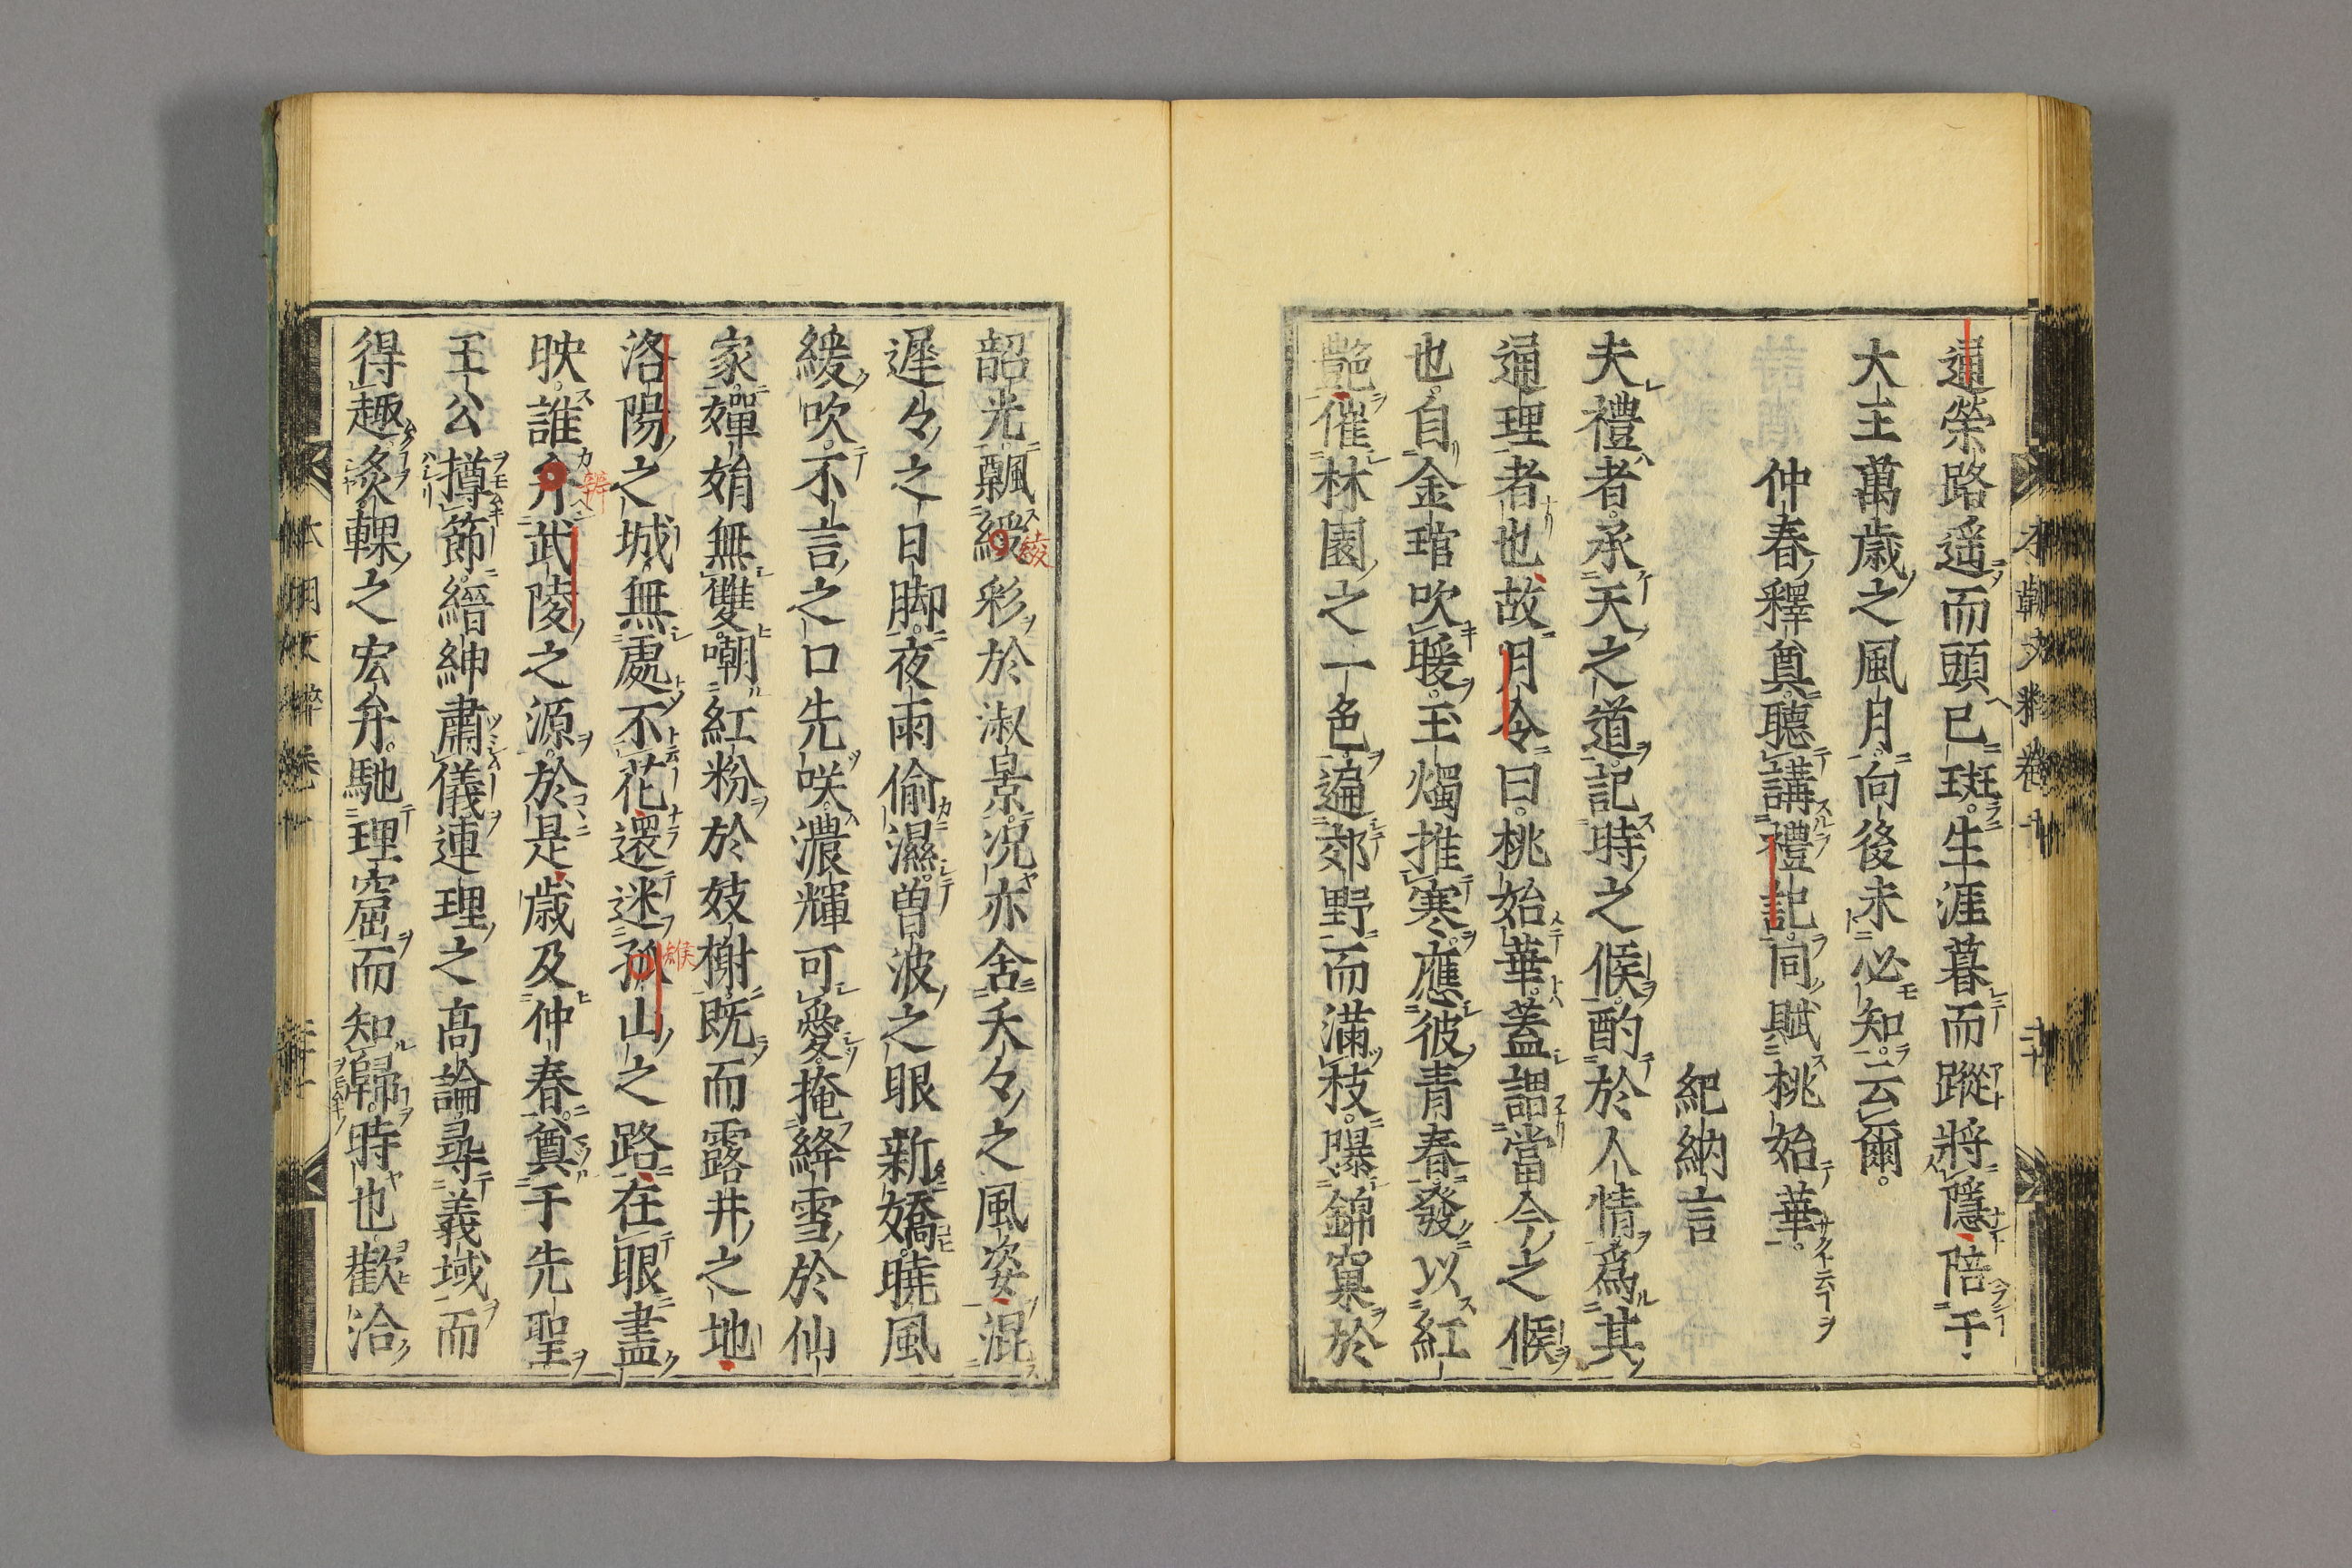 通榮路遥而頭已斑生涯暮而蹤將隱陪于
大王萬歳之風月向後未必知云爾
仲春釋奠聽講禮記同賦桃始華
紀納言
夫禮者承天之道記時之候酌於人情爲其
通理者也故月令曰桃始華蓋謂當今之候
也自金琯吹暖玉燭推寒應彼青春發以紅
艶催林園之一色遍郊野而滿枝曝錦窠於
韶光飄綬彩於淑景況亦含夭々之風姿混
遲々之日脚夜雨偷濕曽波之眼新嬌曉風
緩吹不言之口先咲濃輝可愛掩絳雪於仙
家嬋娟無雙嘲紅粉於妓榭既而露井之地
洛陽之城無處不花還迷孤山之路在眼盡
映誰弁武陵之源於是歳及仲春奠于先聖
王公撙節縉紳肅儀連理之高論尋義域而
得趣炙輠之宏弁馳理窟而知歸時也歡洽
本朝文粹卷十
二十
綾
辨
緱